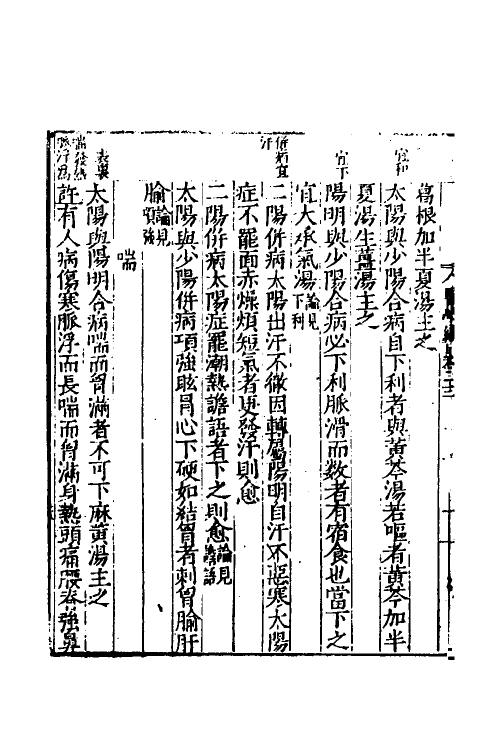 葛根加半夏湯主之
宜和
太陽與少陽合病自下利者與黃芩湯若嘔者黃芩加半
夏湯生薑湯主之
宜下
陽明與少陽合病必下利脈滑而数者有宿食也當下之
宜大承氣湯論見下利
併病宜汗
二陽併病太陽出汗不徹因轉屬陽明自汗不惡寒太陽
症不罷面赤燥煩短氣者更發汗則愈
二陽併病太陽症罷潮熱譫語者下之則愈論見譫語
太陽與少陽併病項強眩冒心下硬如結胷者刺胷腧肝
腧論見項強
喘
表與
太陽與陽明合病喘而胷滿者不可下麻黃湯主之
許有人病傷寒脈浮而長喘而胷滿身熱頭痛腰脊強鼻